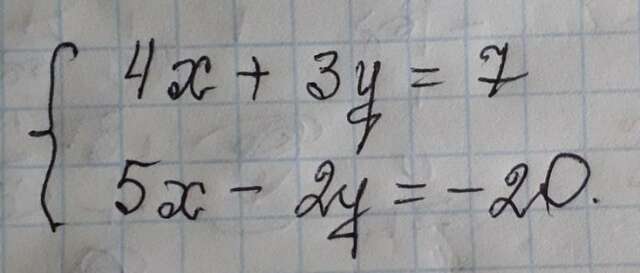 4x + 3y = 7
5x - 2y = -20.